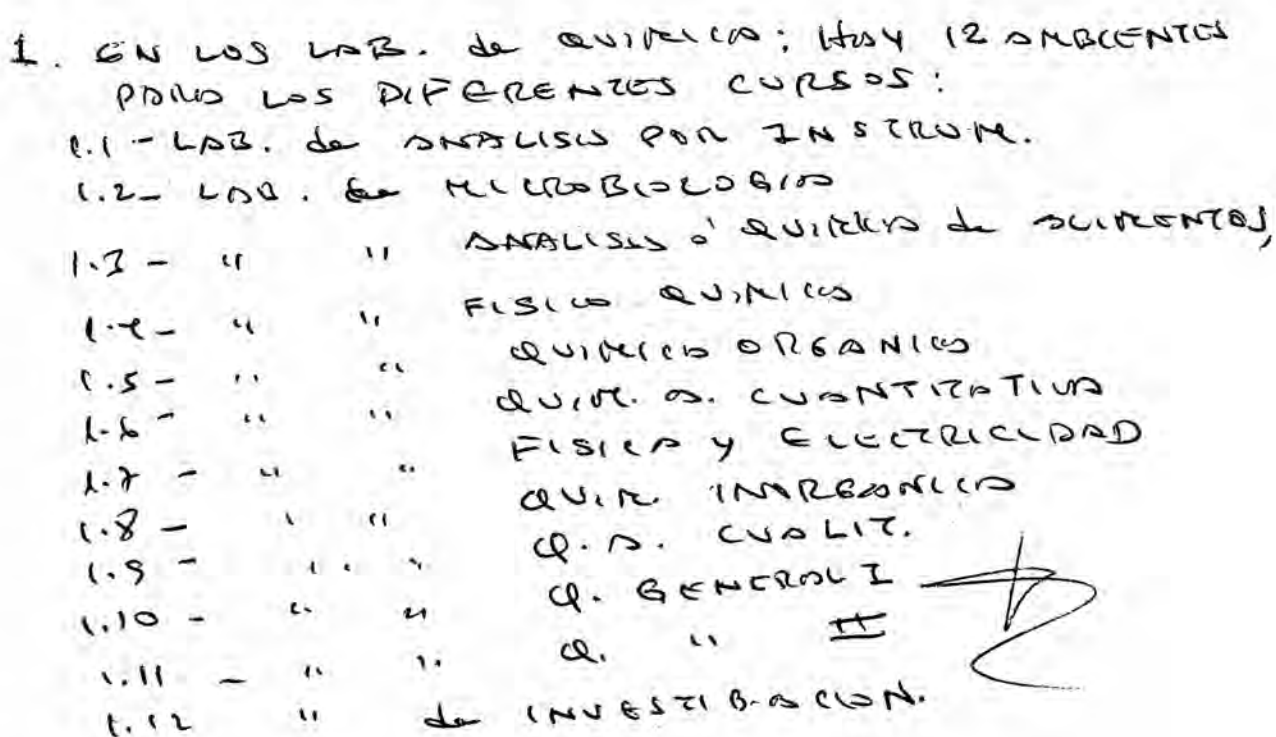 1. EN LOS LAB. de QUIMICA: HAY 12 AMBIENTES
PARA LOS DIFERENTES CURSOS:
1.1 - LAB. de ANALISIS POR INSTRUM.
1.2 - LAB. de MICROBIOLOGIA
1.3 - " " ANALISIS ó QUIMICA de ALIMENTOS,
1.4 - " " FISICO QUIMICA
1.5 - " " QUIMICA ORGANICA
1.6 - " " QUIM. A. CUANTITATIVA
1.7 - " " FISICA y ELECTRICIDAD
1.8 - " " QUIM. INORGANICA
1.9 - " " Q. A. CUALIT.
1.10 - " " Q. GENERAL I
1.11 - " " Q. " II
1.12 " de INVESTIGACION.